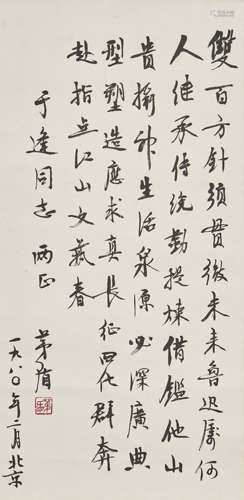 雙百方針須貫徹未来魯迅屬何
人继承传统勤提煉借鑑他山
贵撷神生活泉源必深廣典
型塑造應求真長征四化群奔
赴指点江山文藝春
于逢同志 两正
茅盾
一九八〇年二月北京